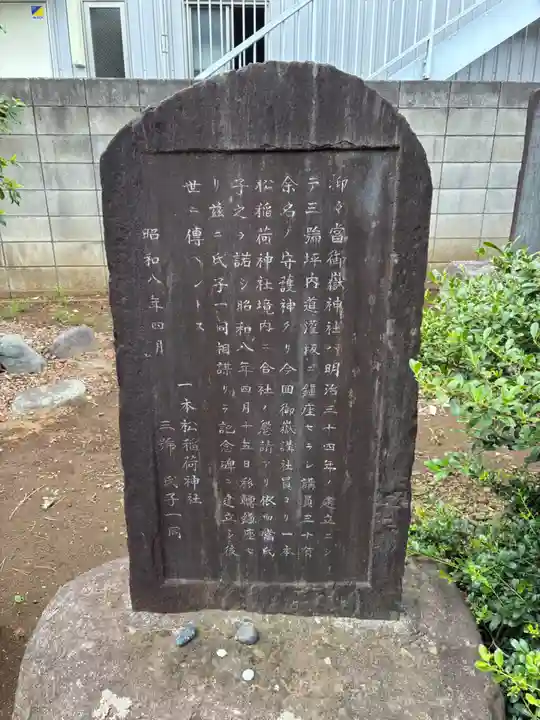 抑々當御嶽神社ハ明治三十四年ノ建立ニシ
テ三號坪内道謹扱ニ鎮座セラレ講員三十有
余名ノ守護神タリ今回御嶽講社員ヨリ一本
松稲荷神社境内ニ合社ノ懇請アリ依而當氏
子之ヲ諾シ昭和八年四月十五日移轉鎮座セ
リ茲ニ氏子一同相謀リテ記念碑ヲ建立シ後
世ニ傳ヘントス
昭和八年四月
一本松稲荷神社
三號 氏子一同